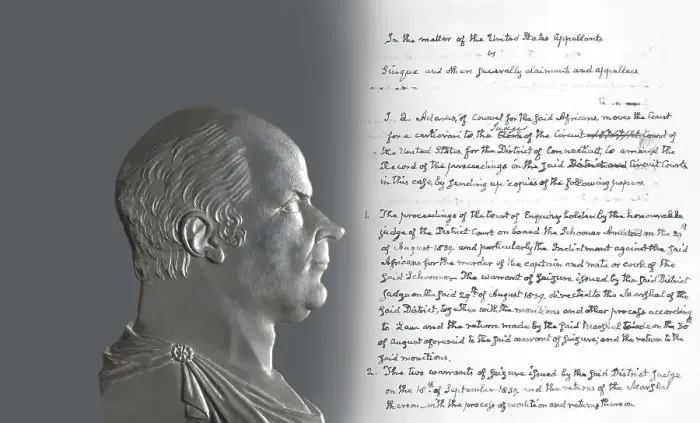 In the matter of the United States Appellants
vs
Cinque and others generally claimants and appellees
J. Q Adams, of Counsel for the said Africans, moves the Court
for a certiorari to the Judge Clerk of the Circuit Court of
the United States for the District of Connecticut, to amend the
Record of the proceedings in the said District and Circuit Courts
in this case, by sending up copies of the following papers
1. The proceedings of the Court of Enquiry holden by the honourable
judge of the District Court on board the Schooner Amistad on the 29th
of August 1839. and particularly the Indictment against the said
Africans for the murder of the captain and mate or cook of the
said Schooner. The warrant of seizure issued by the said District
Judge on the said 29th of August 1839. directed to the Marshal of the
said District, together with the monitions and other process according
to Law and the return made by the said Marshal on the 30th
of August aforesaid to the said warrant of seizure, and the return to the
said monitions.
2. The two warrants of seizure issued by the said District Judge
on the 18th of September 1839 and the returns of the Marshal
thereon with the process of monition and returns thereon